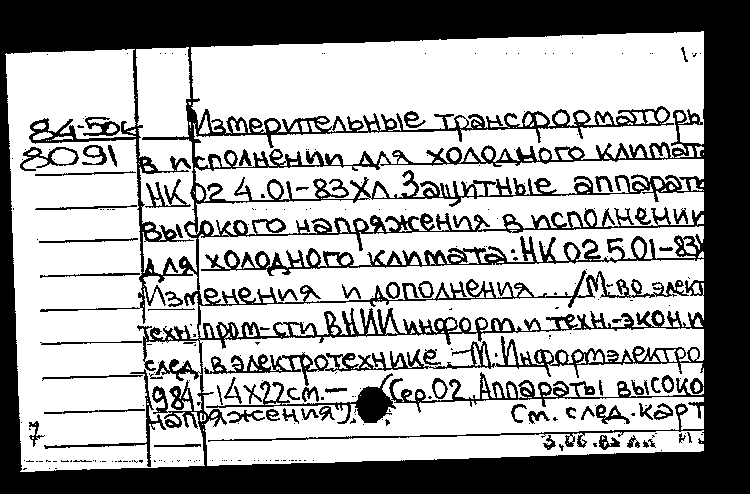 84-50к
8091
Измерительные трансформаторы
в исполнении для холодного климата
НК 02 4.01-83ХЛ. Защитные аппараты
высокого напряжения в исполнении
для холодного климата: НК 02.5 01-83Х
Изменения и дополнения .../М-во элект
техн. пром-сти, ВНИИ информ. и техн.-экон. и
след. в электротехнике. -М.: Информэлектро,
1984. -14Х22см. - (Сер.02 „Аппараты высоко
напряжения").
См. след. карт
7
3.06.85